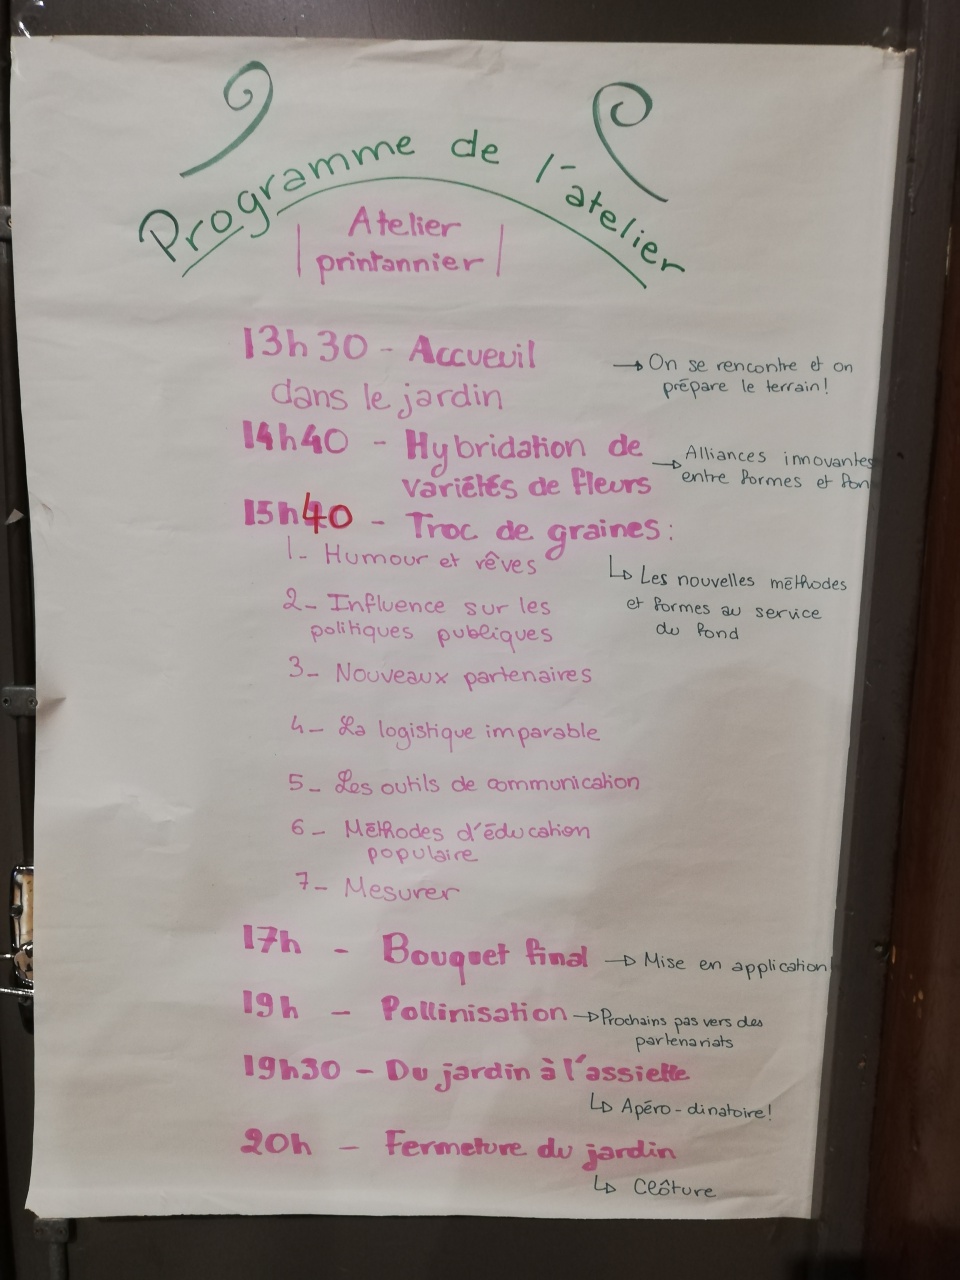 Programme de l'atelier
Atelier
printannier
13h30 - Accueuil
dans le jardin
→ On se rencontre et on
prépare le terrain!
14h40 - Hybridation de
variétés de fleurs
→ Alliances innovantes
entre formes et fon
15h40 - Troc de graines :
↳ Les nouvelles méthodes
et formes au service
du fond
1- Humour et rêves
2- Influence sur les
politiques publiques
3- Nouveaux partenaires
4- La logistique imparable
5- Les outils de communication
6- Méthodes d'éducation
populaire
7- Mesurer
17h - Bouquet final → Mise en application
19h - Pollinisation → Prochains pas vers des
partenariats
19h30 - Du jardin à l'assiette
↳ Apéro-dinatoire!
20h - Fermeture du jardin
↳ Clôture